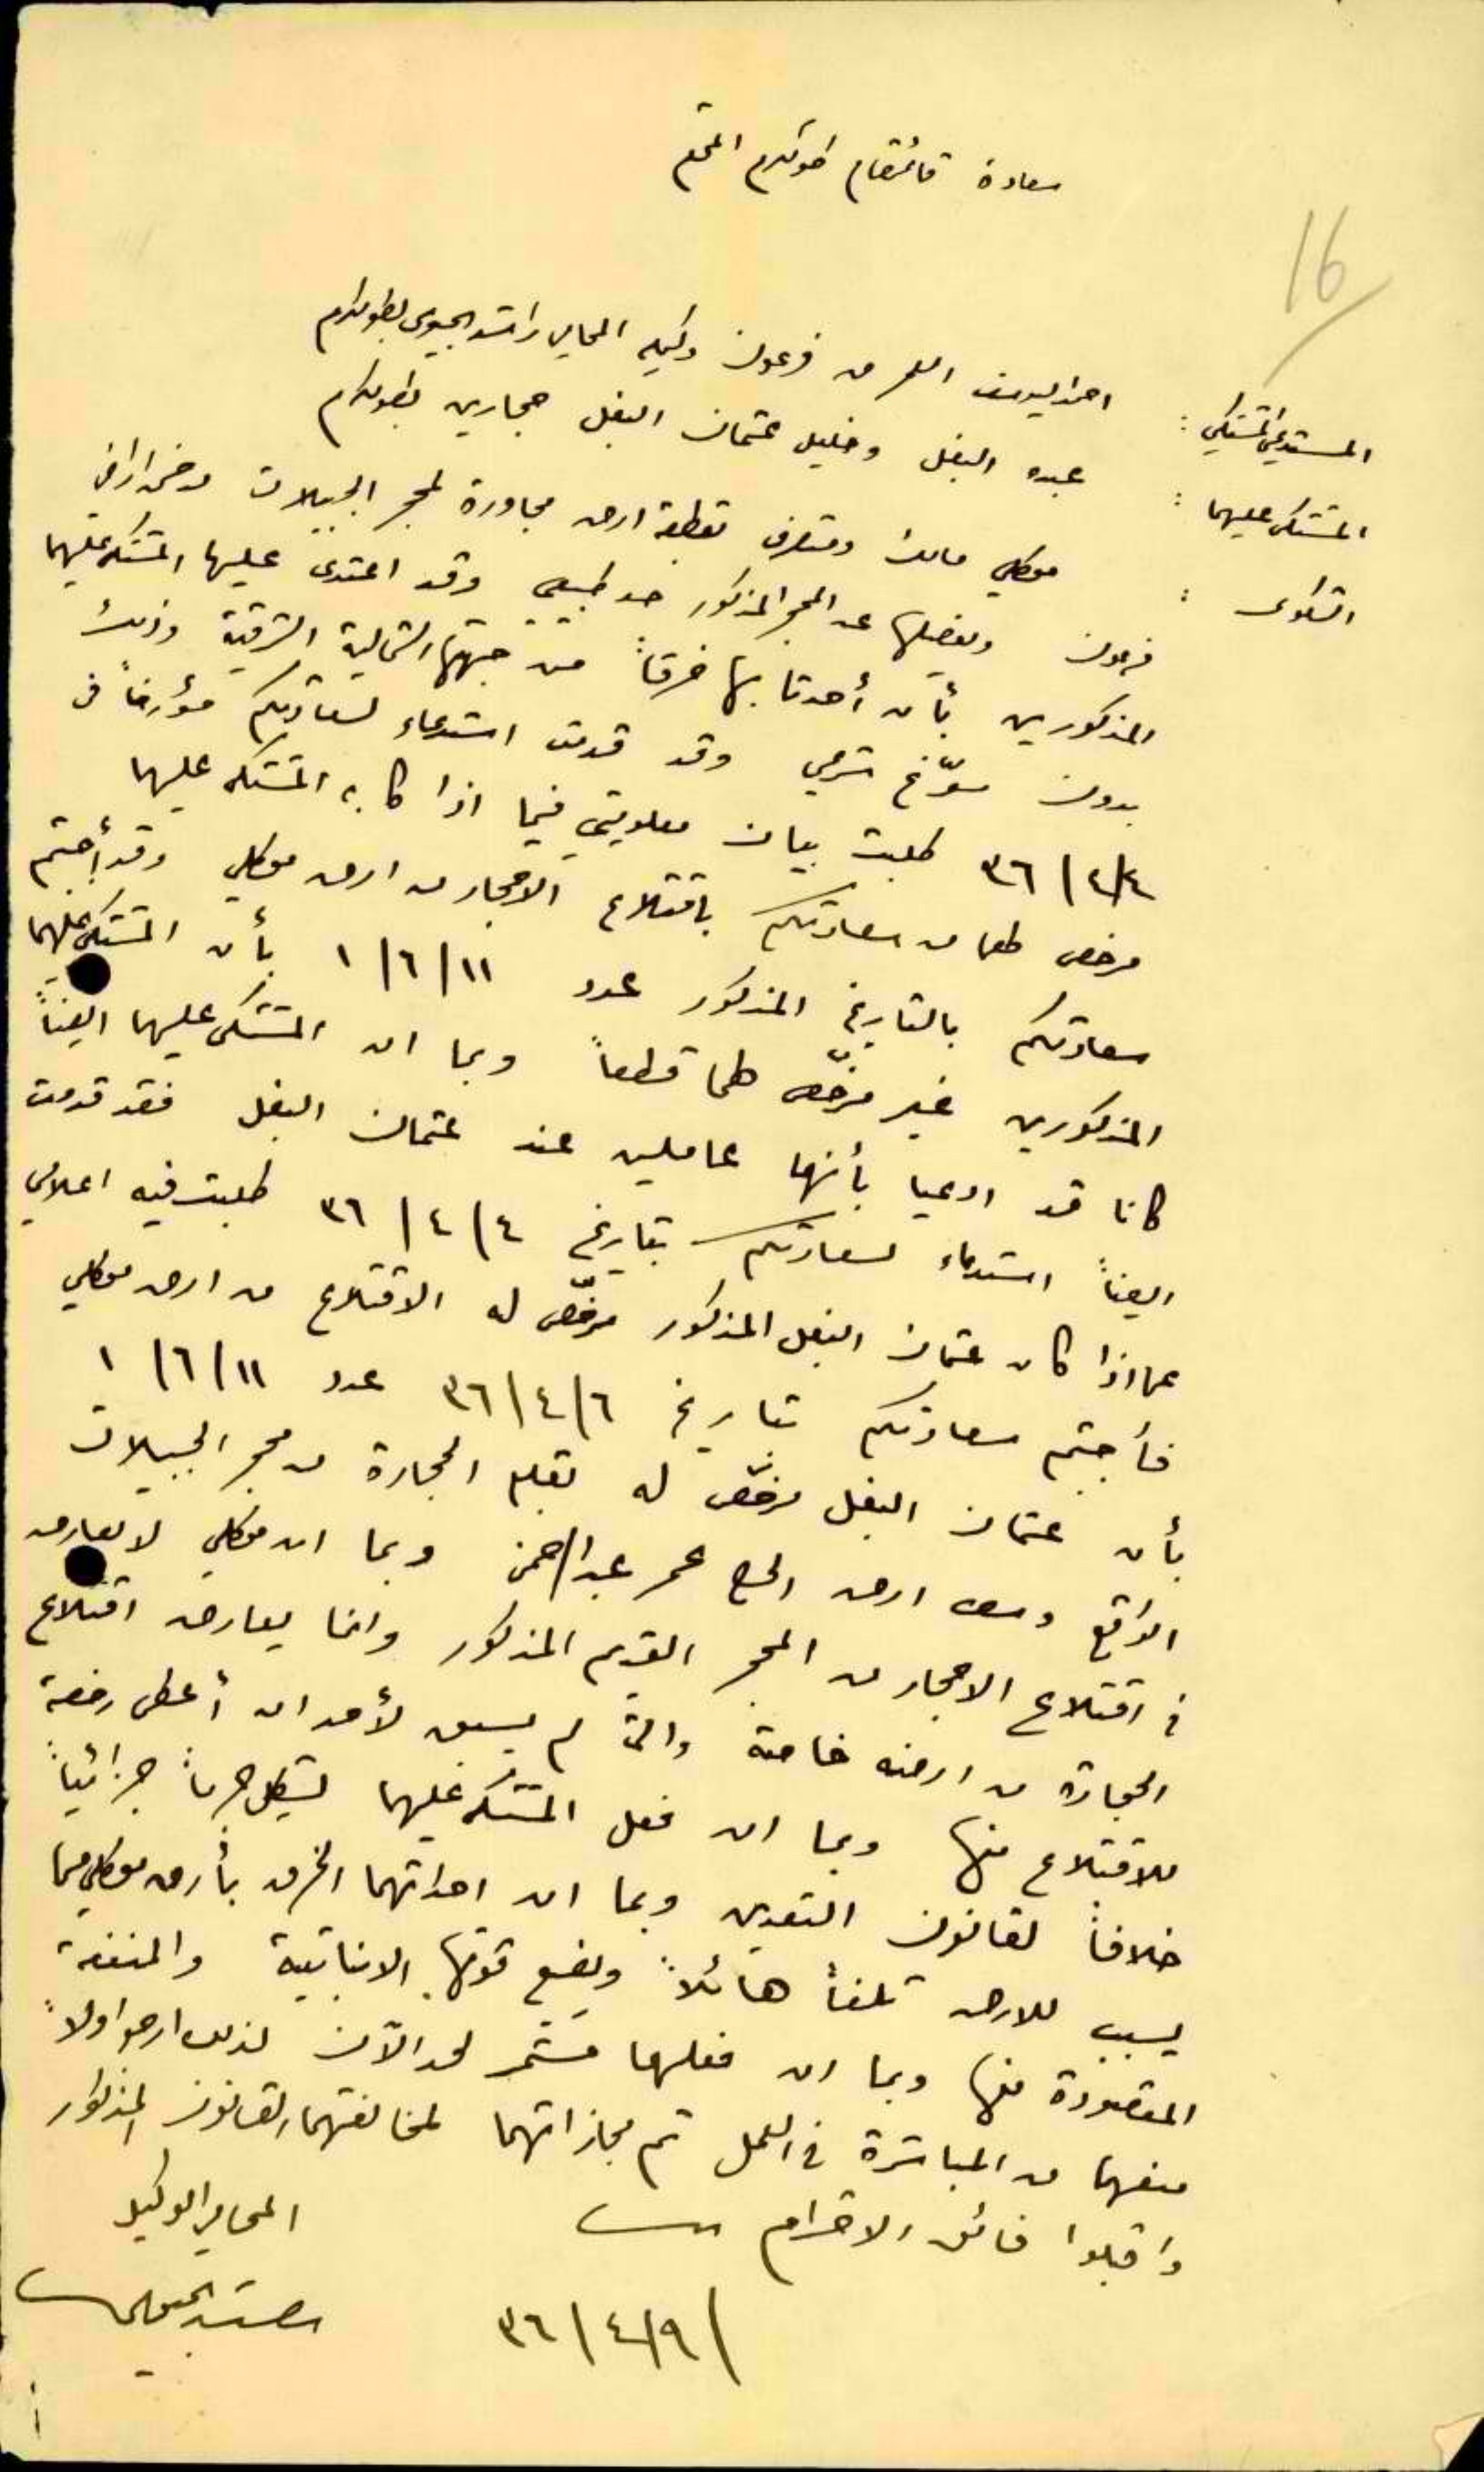 سعادة قائمقام طولكرم المحترم
16
المستدعي المشتكي : احمد اليوسف العمر من فرعون وكيله المحامي راشد الجيوسي بطولكرم
المشتكى عليهما : عبده البغل وخليل عثمان البغل حجارين بطولكرم
الشكوى : موكلي مالك ومتصرف بقطعة ارض مجاورة لمحجر الجبيلات من اراضي
فرعون ويفصلها عن المحجر المذكور حد طبيعي وقد اعتدى عليها المشتكى عليهما
المذكورين بأن أحدثا بها خرقاً من جهتها الشمالية الشرقية وذلك
بدون مسوّغ شرعي وقد قدمت استدعاء لسعادتكم مؤرخاً في
٤/٤/٣٦ طلبت بيان معلوميتي فيما اذا كان المشتكى عليهما
مرخص لهما من سعادتكم باقتلاع الاحجار من ارض موكلي وقد أجبتم
سعادتكم بالتاريخ المذكور عدد ١١/٦/١ بأن المشتكى عليهما
المذكورين غير مرخّص لهما قطعاً وبما ان المشتكى عليهما ايضاً
كانا قد ادعيا بأنهما عاملين عند عثمان البغل فقد قدمت
ايضاً استدعاء لسعادتكم بتاريخ ٤/٤/٣٦ طلبت فيه اعلامي
عما اذا كان عثمان البغل المذكور مرخّص له الاقتلاع من ارض موكلي
فأجبتم سعادتكم بتاريخ ٦/٤/٣٦ عدد ١١/٦/١
بأن عثمان البغل مرخّص له بقلع الحجارة من محجر الجبيلات
الواقع وسط ارض الحاج عمر عبد الرحمن وبما ان موكلي لا يعارض
في اقتلاع الاحجار من المحجر القديم المذكور وانما يعارض اقتلاع
الحجارة من ارضه خاصة والتي لم يسبق لأحد ان أعطى رخصة
للاقتلاع منها وبما ان فعل المشتكى عليهما يشكل جرماً جزائياً
خلافاً لقانون التعدي وبما ان احداثهما الخرق بأرض موكلي مما
يسبب للارض تلفاً هائلاً ويضيع قوتها الانباتية والمنفعة
المقصودة منها وبما ان فعلهما مستمر لحد الآن لذلك ارجو اولاً
منعهما من المباشرة في العمل ثم مجازاتهما لمخالفتهما القانون المذكور
واقبلوا فائق الاحترام
المحامي الوكيل
٩/٤/٣٦